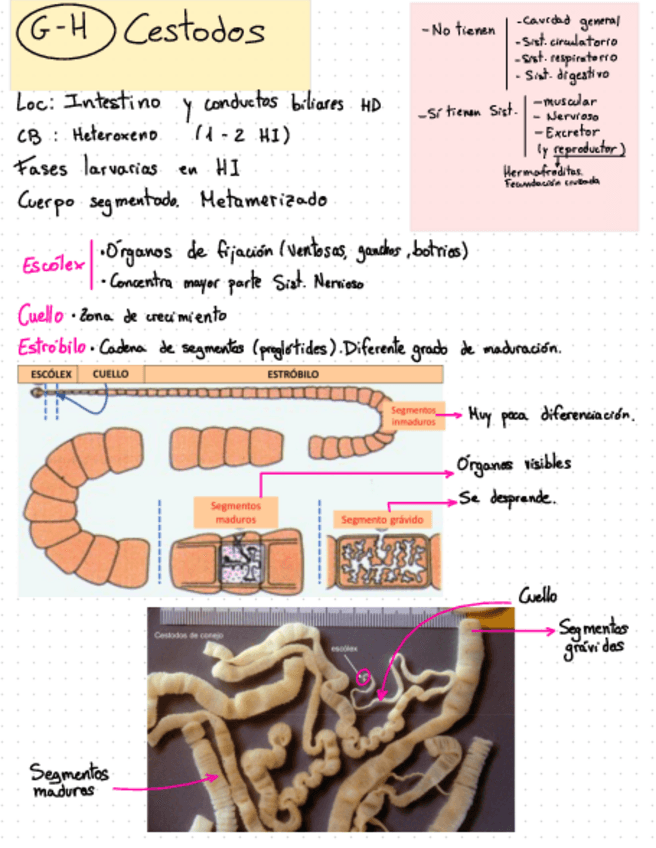 G-H Cestodos
- No tienen
- Cavidad general
- Sist. circulatorio
- Sist. respiratorio
- Sist. digestivo
- Sí tienen Sist.
- muscular
- Nervioso
- Excretor
(y reproductor)
Hermafroditas.
Fecundación cruzada
Loc: Intestino y conductos biliares HD
CB : Heteroxeno (1 - 2 HI)
Fases larvarias en HI
Cuerpo segmentado. Metamerizado
Escólex
• Órganos de fijación (ventosas, ganchos, botrios)
• Concentra mayor parte Sist. Nervioso
Cuello • Zona de crecimiento
Estróbilo • Cadena de segmentos (proglótides). Diferente grado de maduración.
ESCÓLEX CUELLO ESTRÓBILO
Segmentos
inmaduros
Muy poca diferenciación.
Órganos visibles
Se desprende.
Segmentos
maduros
Segmento grávido
Cuello
Segmentos
grávidos
Cestodos de conejo
escólex
Segmentos
maduros